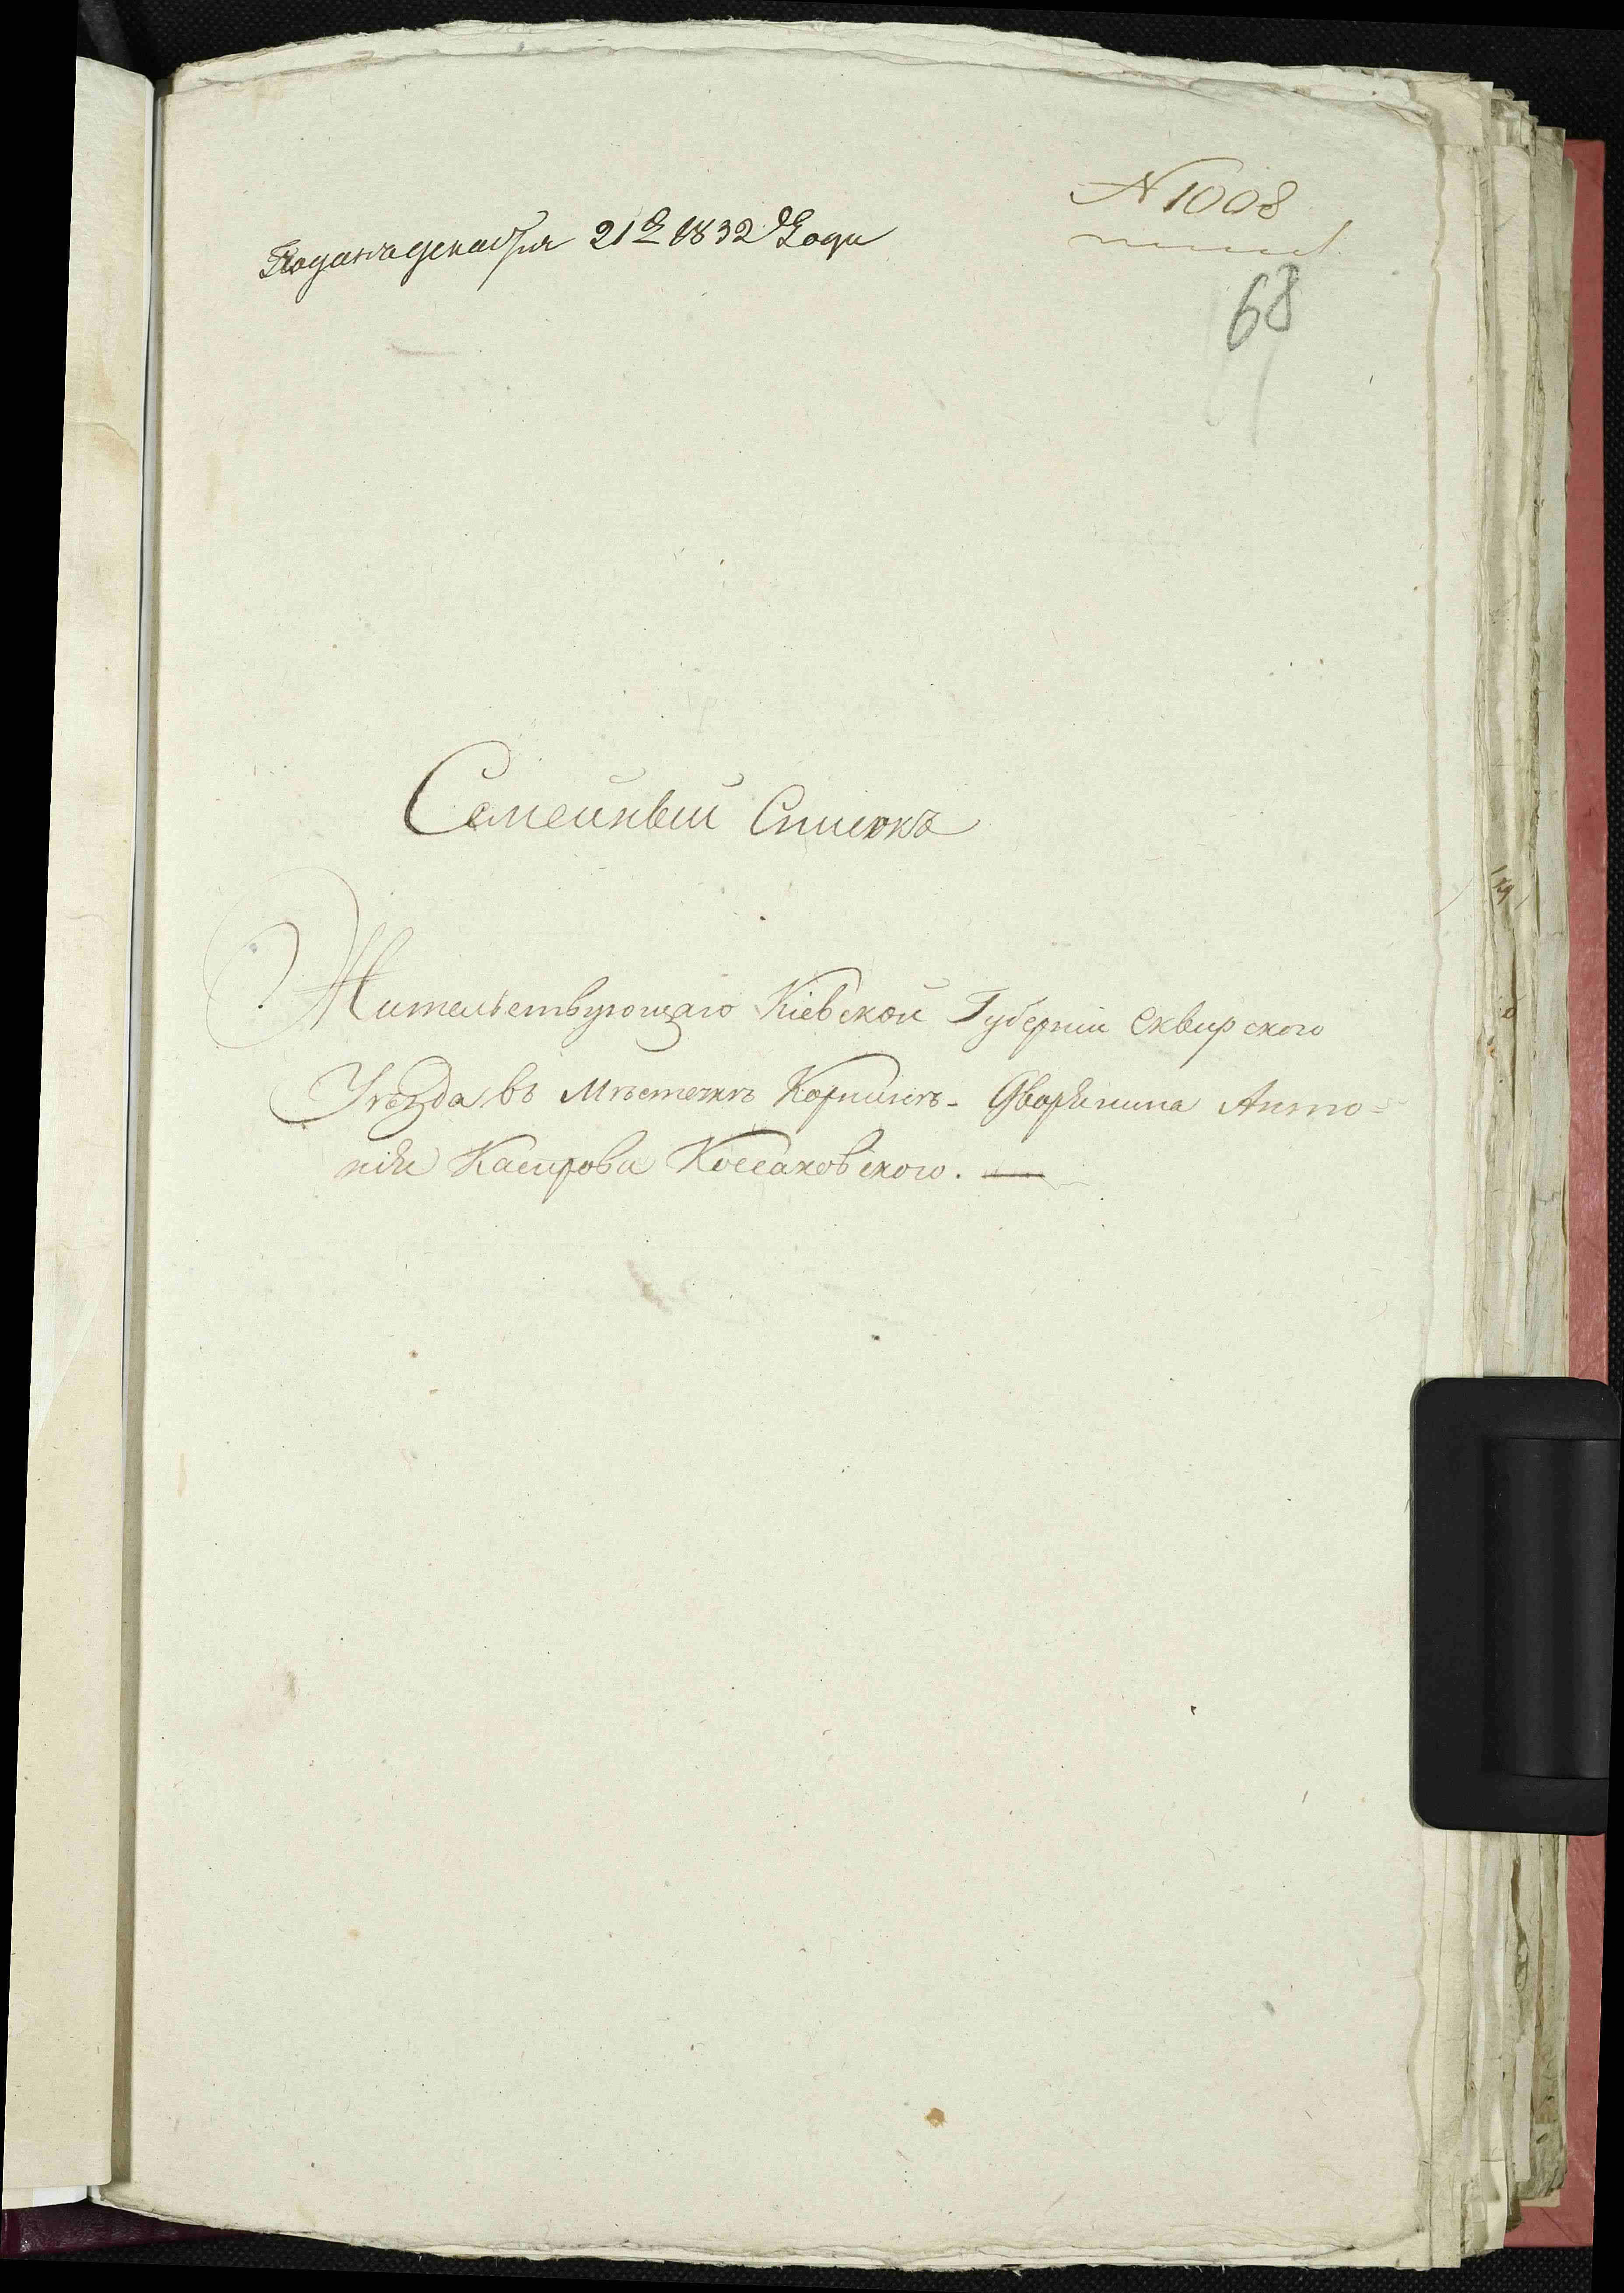 N 1008
Подана декабря 21го 1832 Года
68
Семейный Списокъ
Жительствующаго Кіевской Губерніи Сквирского
Уѣзда въ Мѣстечкѣ Корнинѣ - Дворянина Анто=
нія Каспрова Коссаковского. —